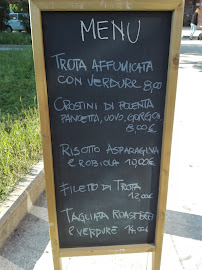 MENU
TROTA AFFUMICATA
CON VERDURE 8,00
CROSTINI DI POLENTA
PANCETTA, UOVO,
8,00 €
RISOTTO ASPARAGINA
E ROBIOLA 10,00€
FILETTO DI TROTA
12,00€
TAGLIATA ROASTBEEF
E VERDURE 14,00€